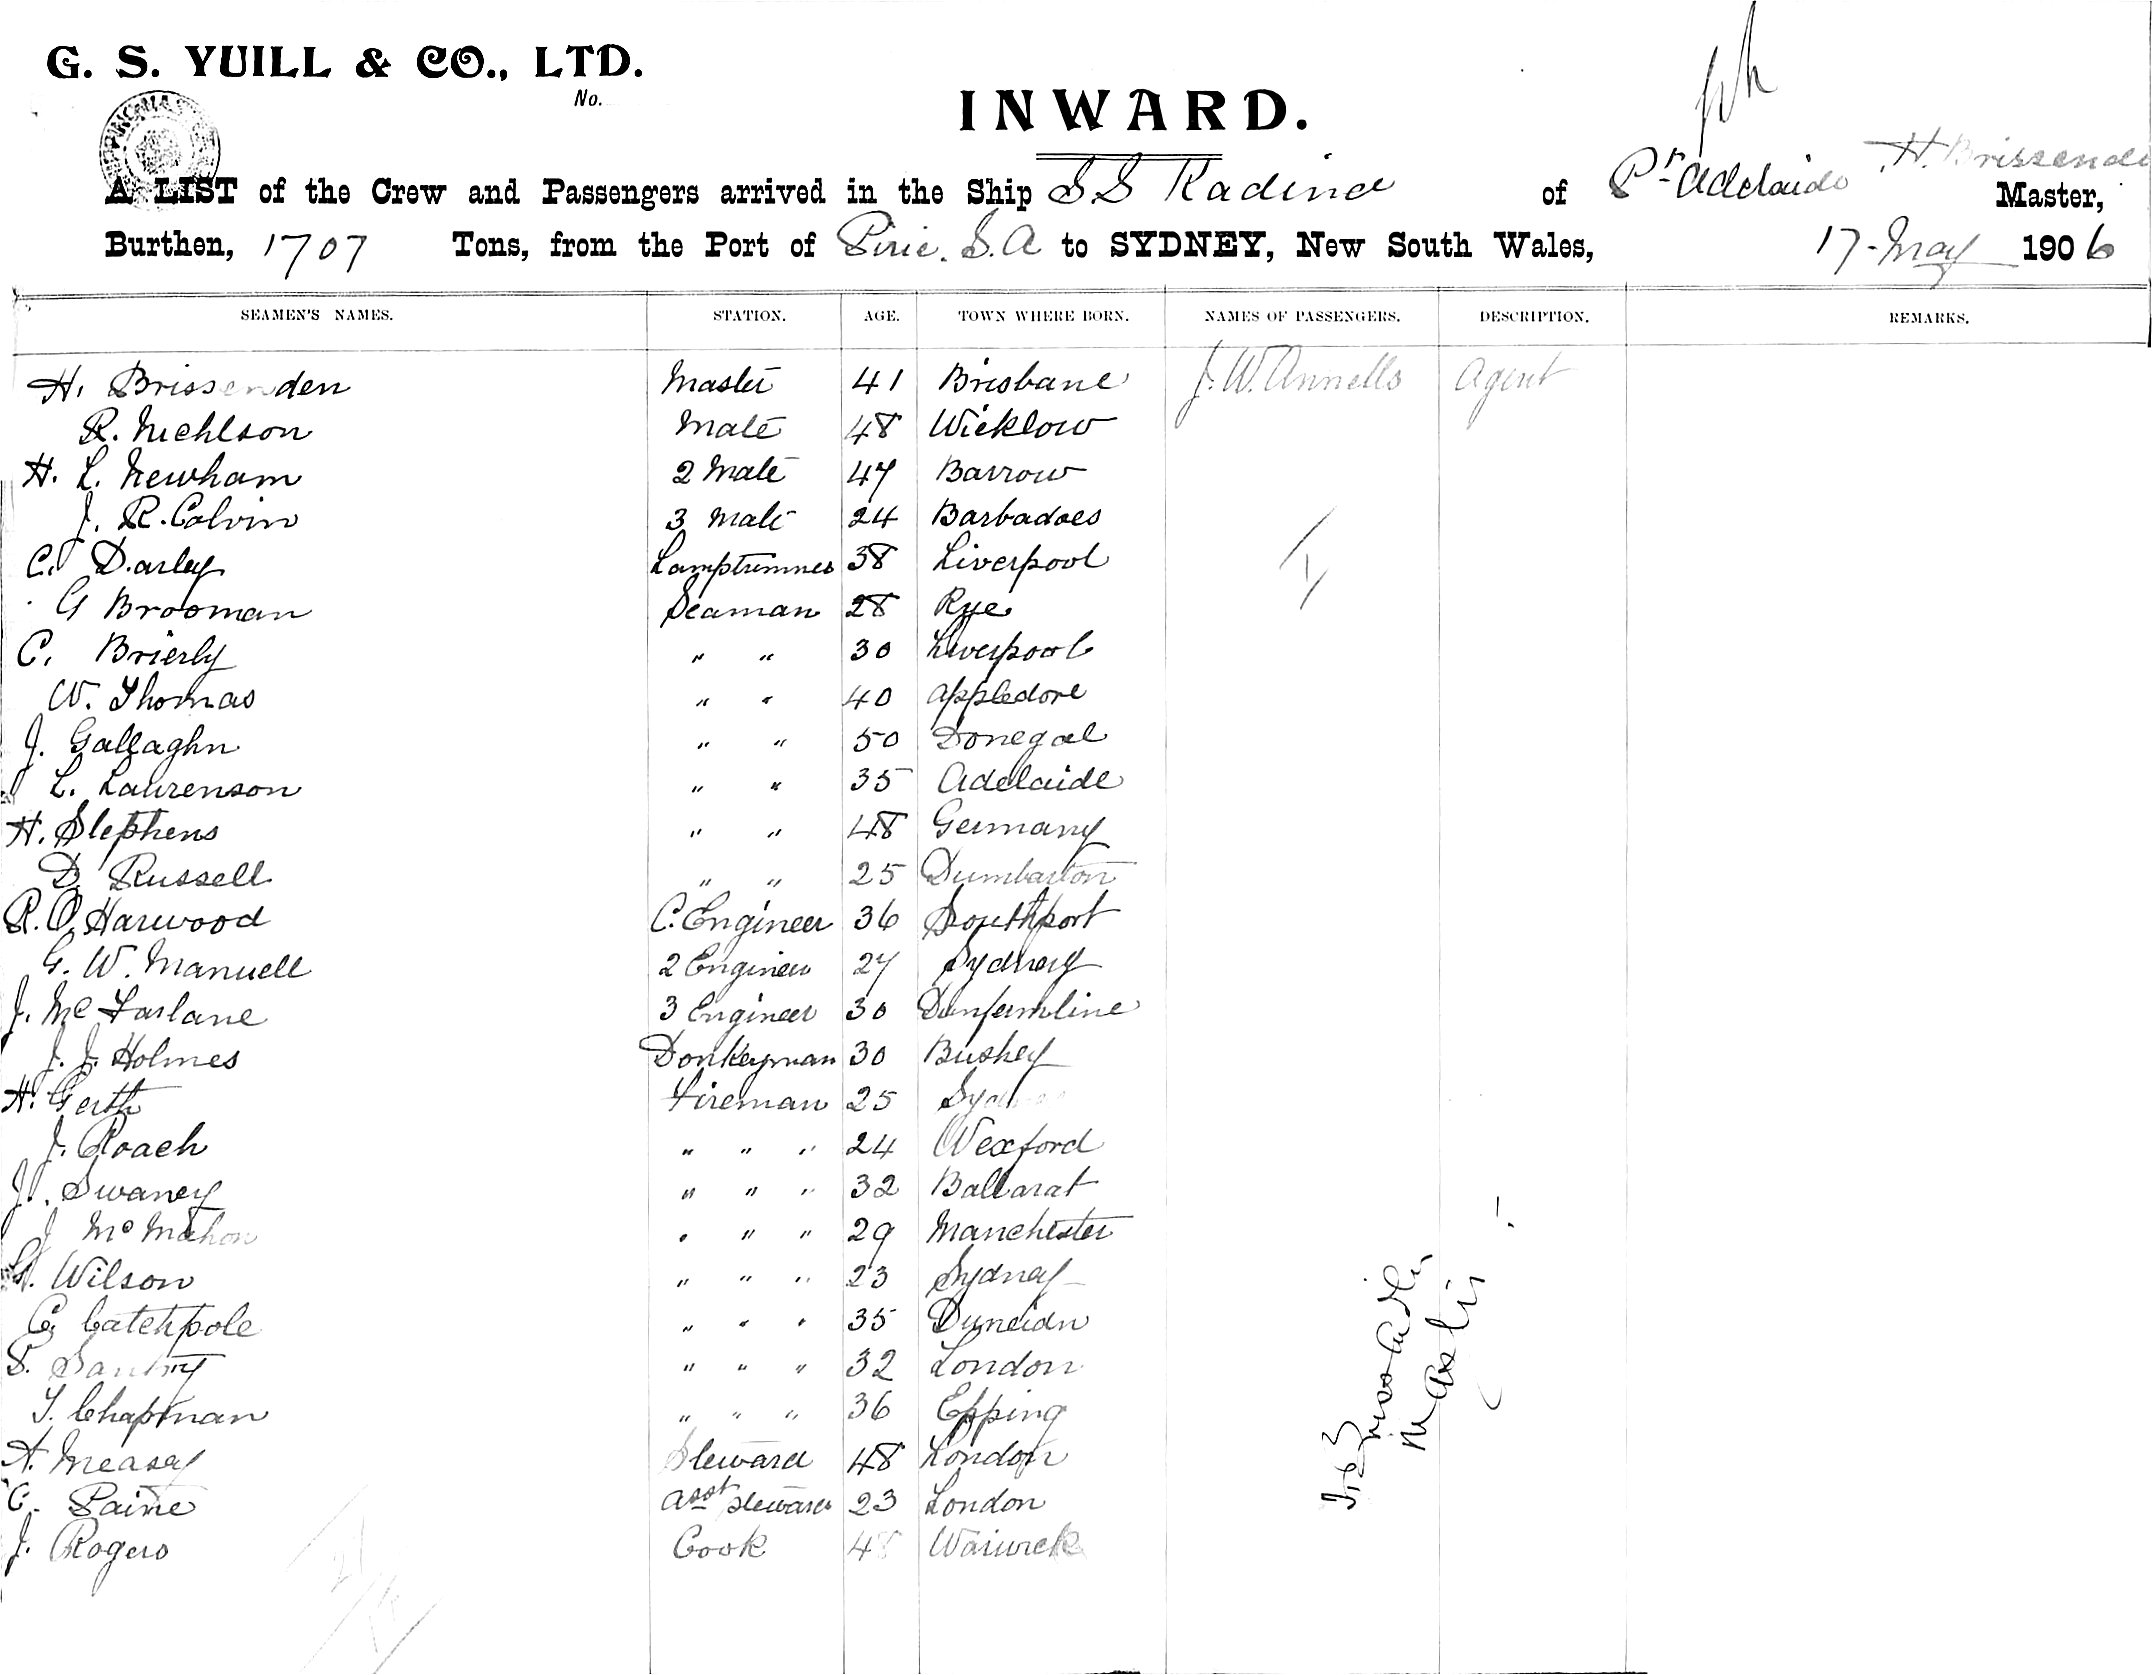 G. S. YUILL & CO., LTD.
No.
INWARD.
A LIST of the Crew and Passengers arrived in the Ship S S Kadina of Pt Adelaide H. Brissende Master,
Burthen, 1707 Tons, from the Port of Pirie. S.A to SYDNEY, New South Wales, 17-May 1906
SEAMEN'S NAMES. STATION. AGE. TOWN WHERE BORN. NAMES OF PASSENGERS. DESCRIPTION. REMARKS.
H. Brissenden Master 41 Brisbane J. W. Annells Agent
R. Nichlson Mate 48 Wicklow
H. L. Newham 2 Mate 47 Barrow
J. R. Colvin 3 Mate 24 Barbadoes
C. Darley Lamptrimmer 38 Liverpool
G Brooman Seaman 28 Rye
C. Brierly " " 30 Liverpool
W. Thomas " " 40 Appledore
J. Gallaghr " " 50 Donegal
L. Laurenson " " 35 Adelaide
H. Stephens " " 48 Germany
D. Russell " " 25 Dumbarton
R. O. Harwood C. Engineer 36 Southport
G. W. Manuell 2 Engineer 27 Sydney
J. Mc Farlane 3 Engineer 30 Dunfermline
J. J. Holmes Donkeyman 30 Bushey
H. Gerth Fireman 25
J. Roach " " " 24 Wexford
J. Swaney " " " 32 Ballarat
J Mc Mahon " " " 29 Manchester
Wilson " " " 23 Sydney
C. Catchpole " " " 35 Duneidn
" " " 32 London
T. Chapman " " " 36 Epping
A. Measey Steward 48 London
C. Paine Asst Steward 23 London
J. Rogers Cook 48 Warwick